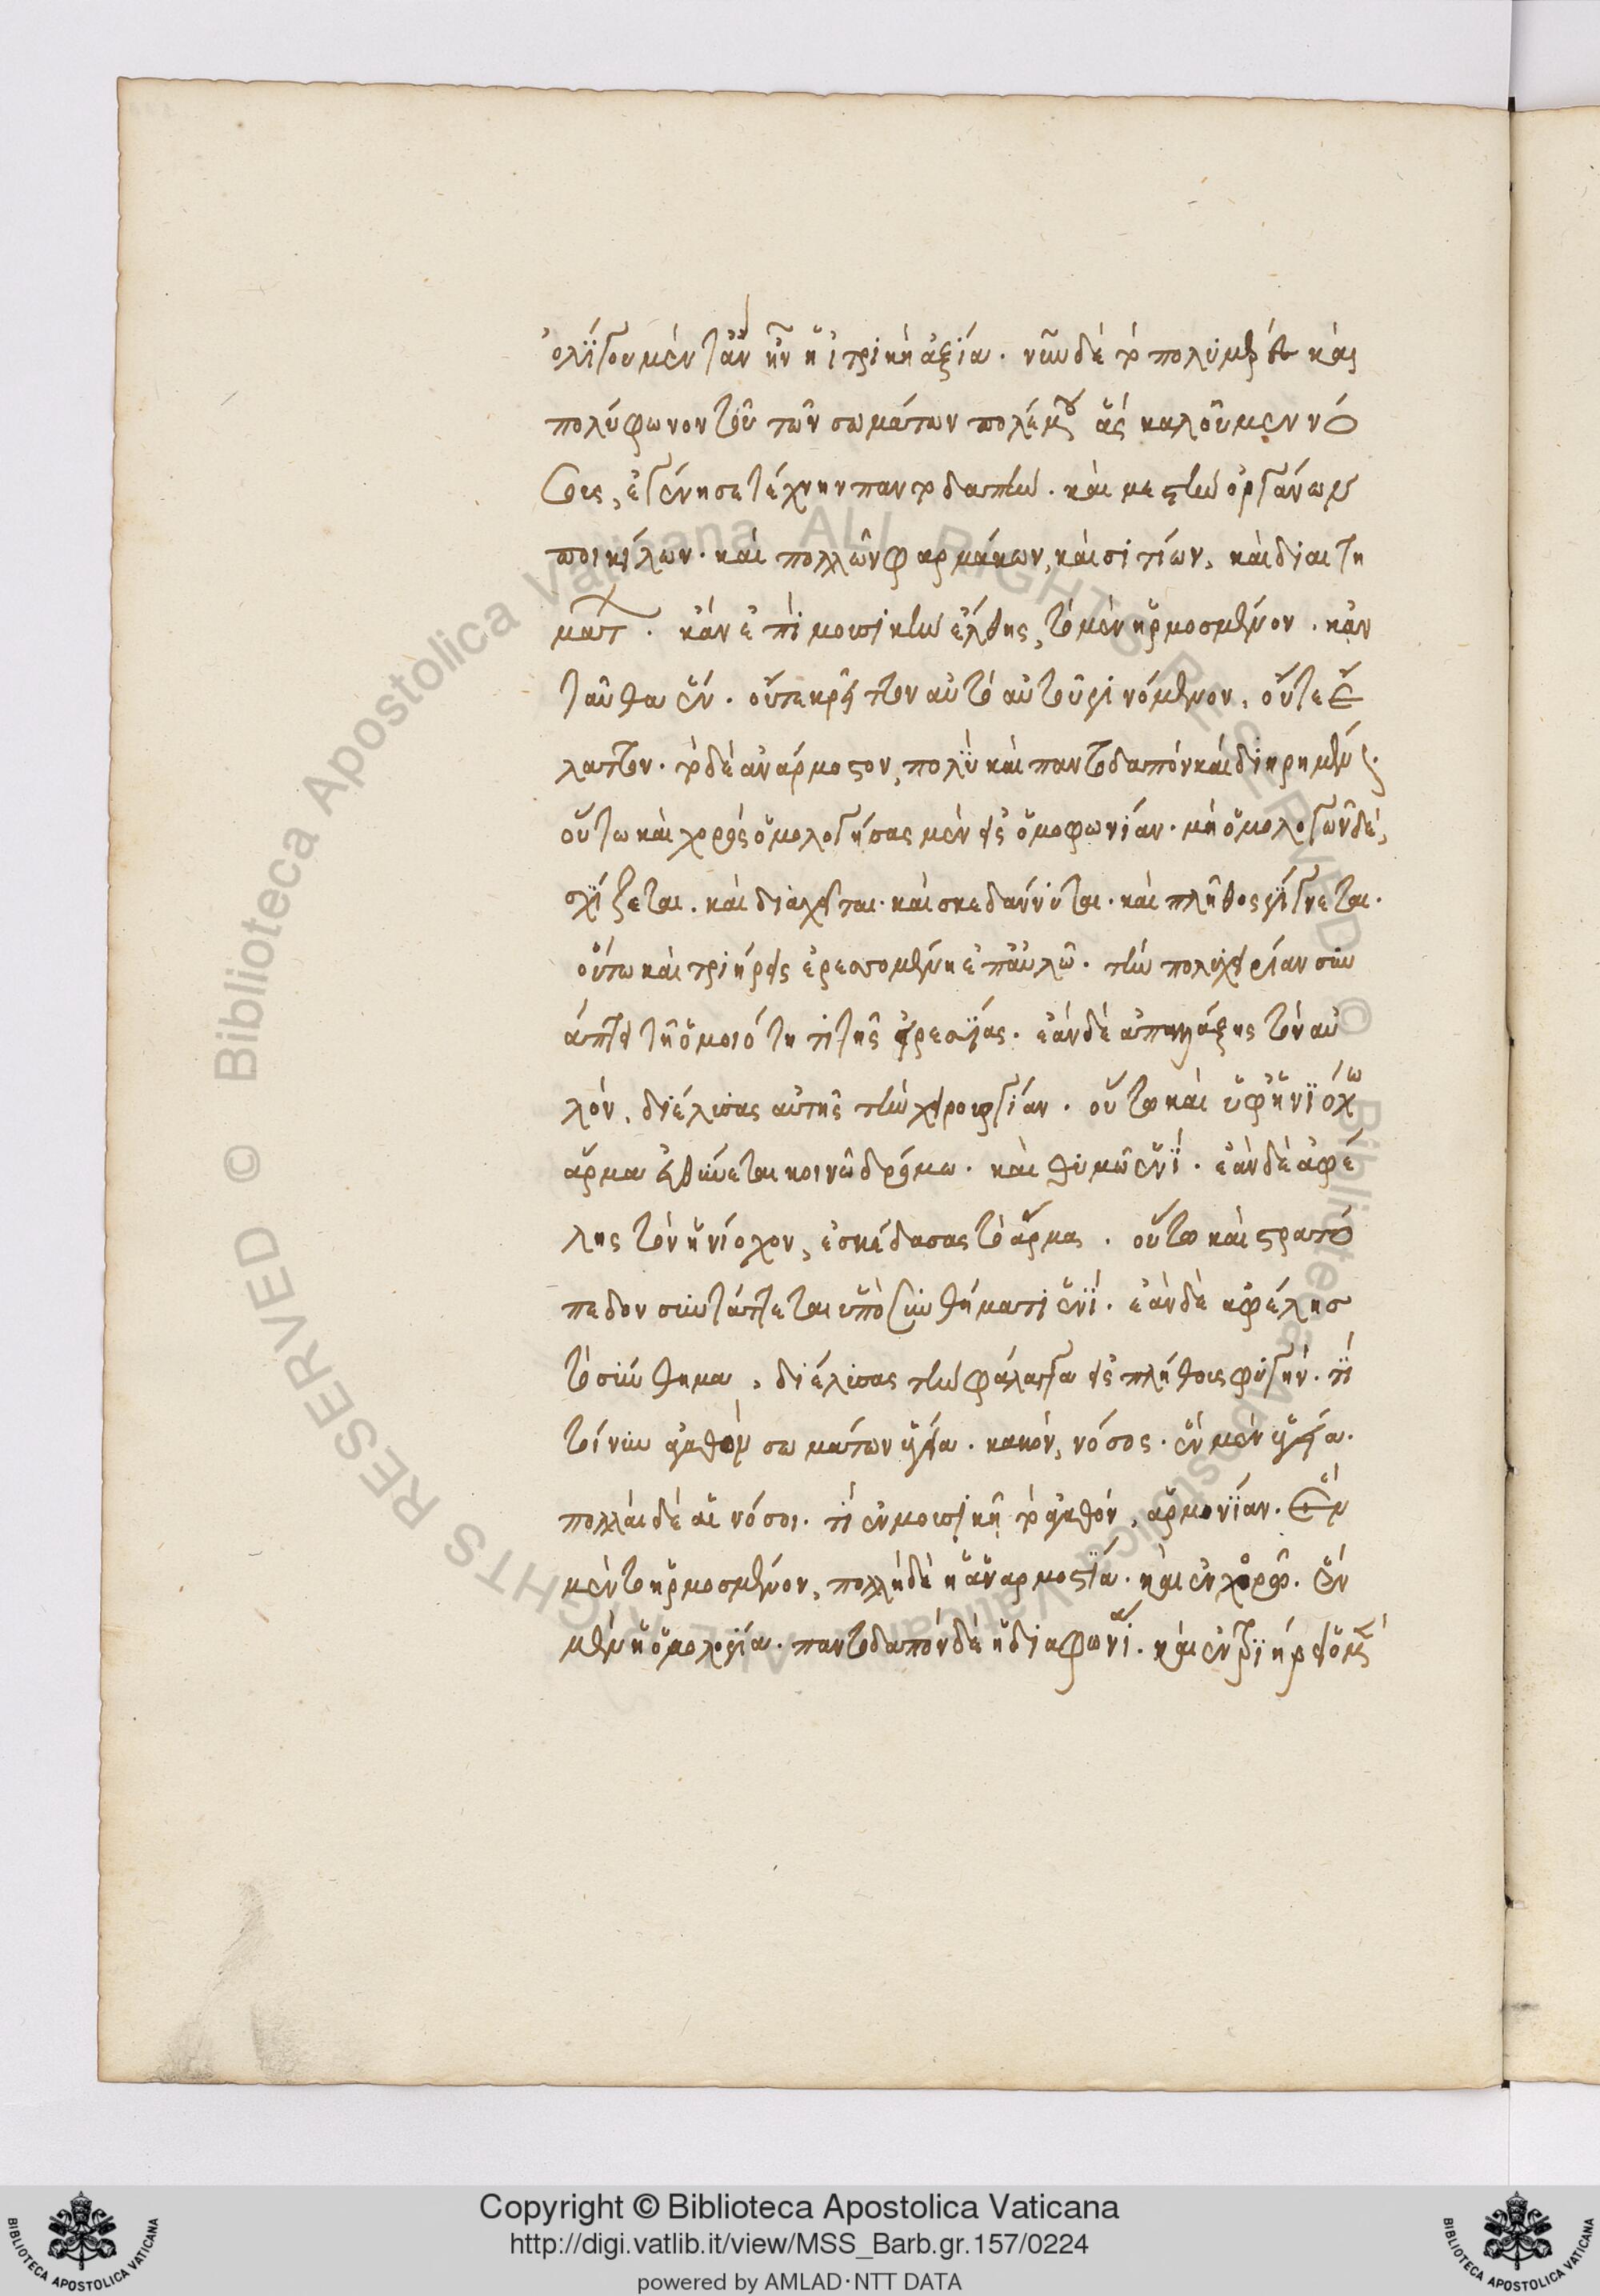 ὀλίγου μὲν τἂν ἦν ἡ ἰατρικὴ ἀξία. νῦν δὲ τὸ πολυμερὲς καὶ
πολύφωνον τοῦ τῶν σωμάτων πολέμου ἃς καλοῦμεν νό
σους, ἐγέννησε τέχνην παντοδαπὴν. καὶ μεστὴν ὀργάνων
ποικίλων. καὶ πολλῶν φαρμάκων, καὶ σιτίων, καὶ διαιτη
μάτων. κἂν ἐπὶ μουσικὴν ἔλθης, τὸ μὲν ἡρμοσμένον. κἀν
ταῦθα ἕν. οὔτε κρεῖττον αὐτὸ αὐτοῦ γινόμενον, οὔτε ἔ
λαττον. τὸ δὲ ἀνάρμοστον, πολὺ καὶ παντοδαπὸν καὶ διηρημένον.
οὕτω καὶ χορὸς ὁμολογήσας μὲν εἰς ὁμοφωνίαν. μὴ ὁμολογῶν δὲ,
σχίζεται. καὶ διαλύεται. καὶ σκεδάννυται. καὶ πλῆθος γίγνεται.
οὕτω καὶ τριήρης ἐρεσσομένη ἐπ' αὐλῶ. τὴν πολυχειρίαν συν
άπτει τῆ ὁμοιότητι τῆς εἰρεσίας. ἐὰν δὲ ἀπαλλάξης τὸν αὐ
λόν, διέλυσας αὐτῆς τὴν χειρουργίαν. οὕτω καὶ ὑφ' ἡνιόχω
ἅρμα εὐθύνεται κοινῶ δρόμω. καὶ θυμῶ ἑνί. ἐὰν δὲ ἀφέ
λης τὸν ἡνίοχον, ἐσκέδασας τὸ ἅρμα. οὕτω καὶ στρατό
πεδον συντάττεται ὑπὸ συνθήματι ἑνί. ἐὰν δὲ ἀφέλης
τὸ σύνθημα, διέλυσας τὴν φάλαγγα εἰς πλῆθους φυγήν. τί
τοίνυν ἀγαθὸν σωμάτων ὑγεία. κακὸν, νόσος. ἓν μὲν ὑγεία.
πολλαὶ δὲ αἱ νόσοι. τί ἐν μουσικῆ τὸ ἀγαθόν, ἁρμονίαν. ἓν
μὲν τὸ ἡρμοσμένον, πολλὴ δὲ ἡ ἀναρμοστία. τί καὶ ἐν χορῶ. ἓν
μὲν ἡ ὁμολογία. παντοδαπὸν δὲ ἡ διαφωνία. καὶ ἐν τριήρει ὁμ
Copyright © Biblioteca Apostolica Vaticana
http://digi.vatlib.it/view/MSS_Barb.gr.157/0224
powered by AMLAD·NTT DATA
BIBLIOTECA APOSTOLICA VATICANA
BIBLIOTECA APOSTOLICA VATICANA
© Biblioteca Apostolica Vaticana ALL RIGHTS RESERVED © Biblioteca Apostolica Vaticana ALL RIGHTS RESERVED